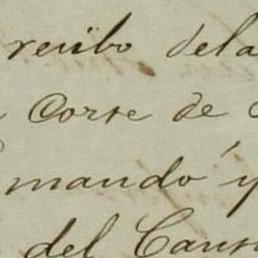 reciibo dela
Corte de
mando y
del Caus